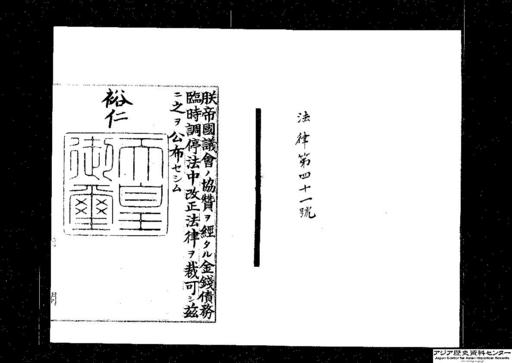 法律第四十一號
朕帝國議會ノ協贊ヲ經タル金錢債務
臨時調停法中改正法律ヲ裁可シ茲
ニ之ヲ公布セシム
裕仁
天皇
御璽
アジア歴史資料センター
Japan Center for Asian Historical Records